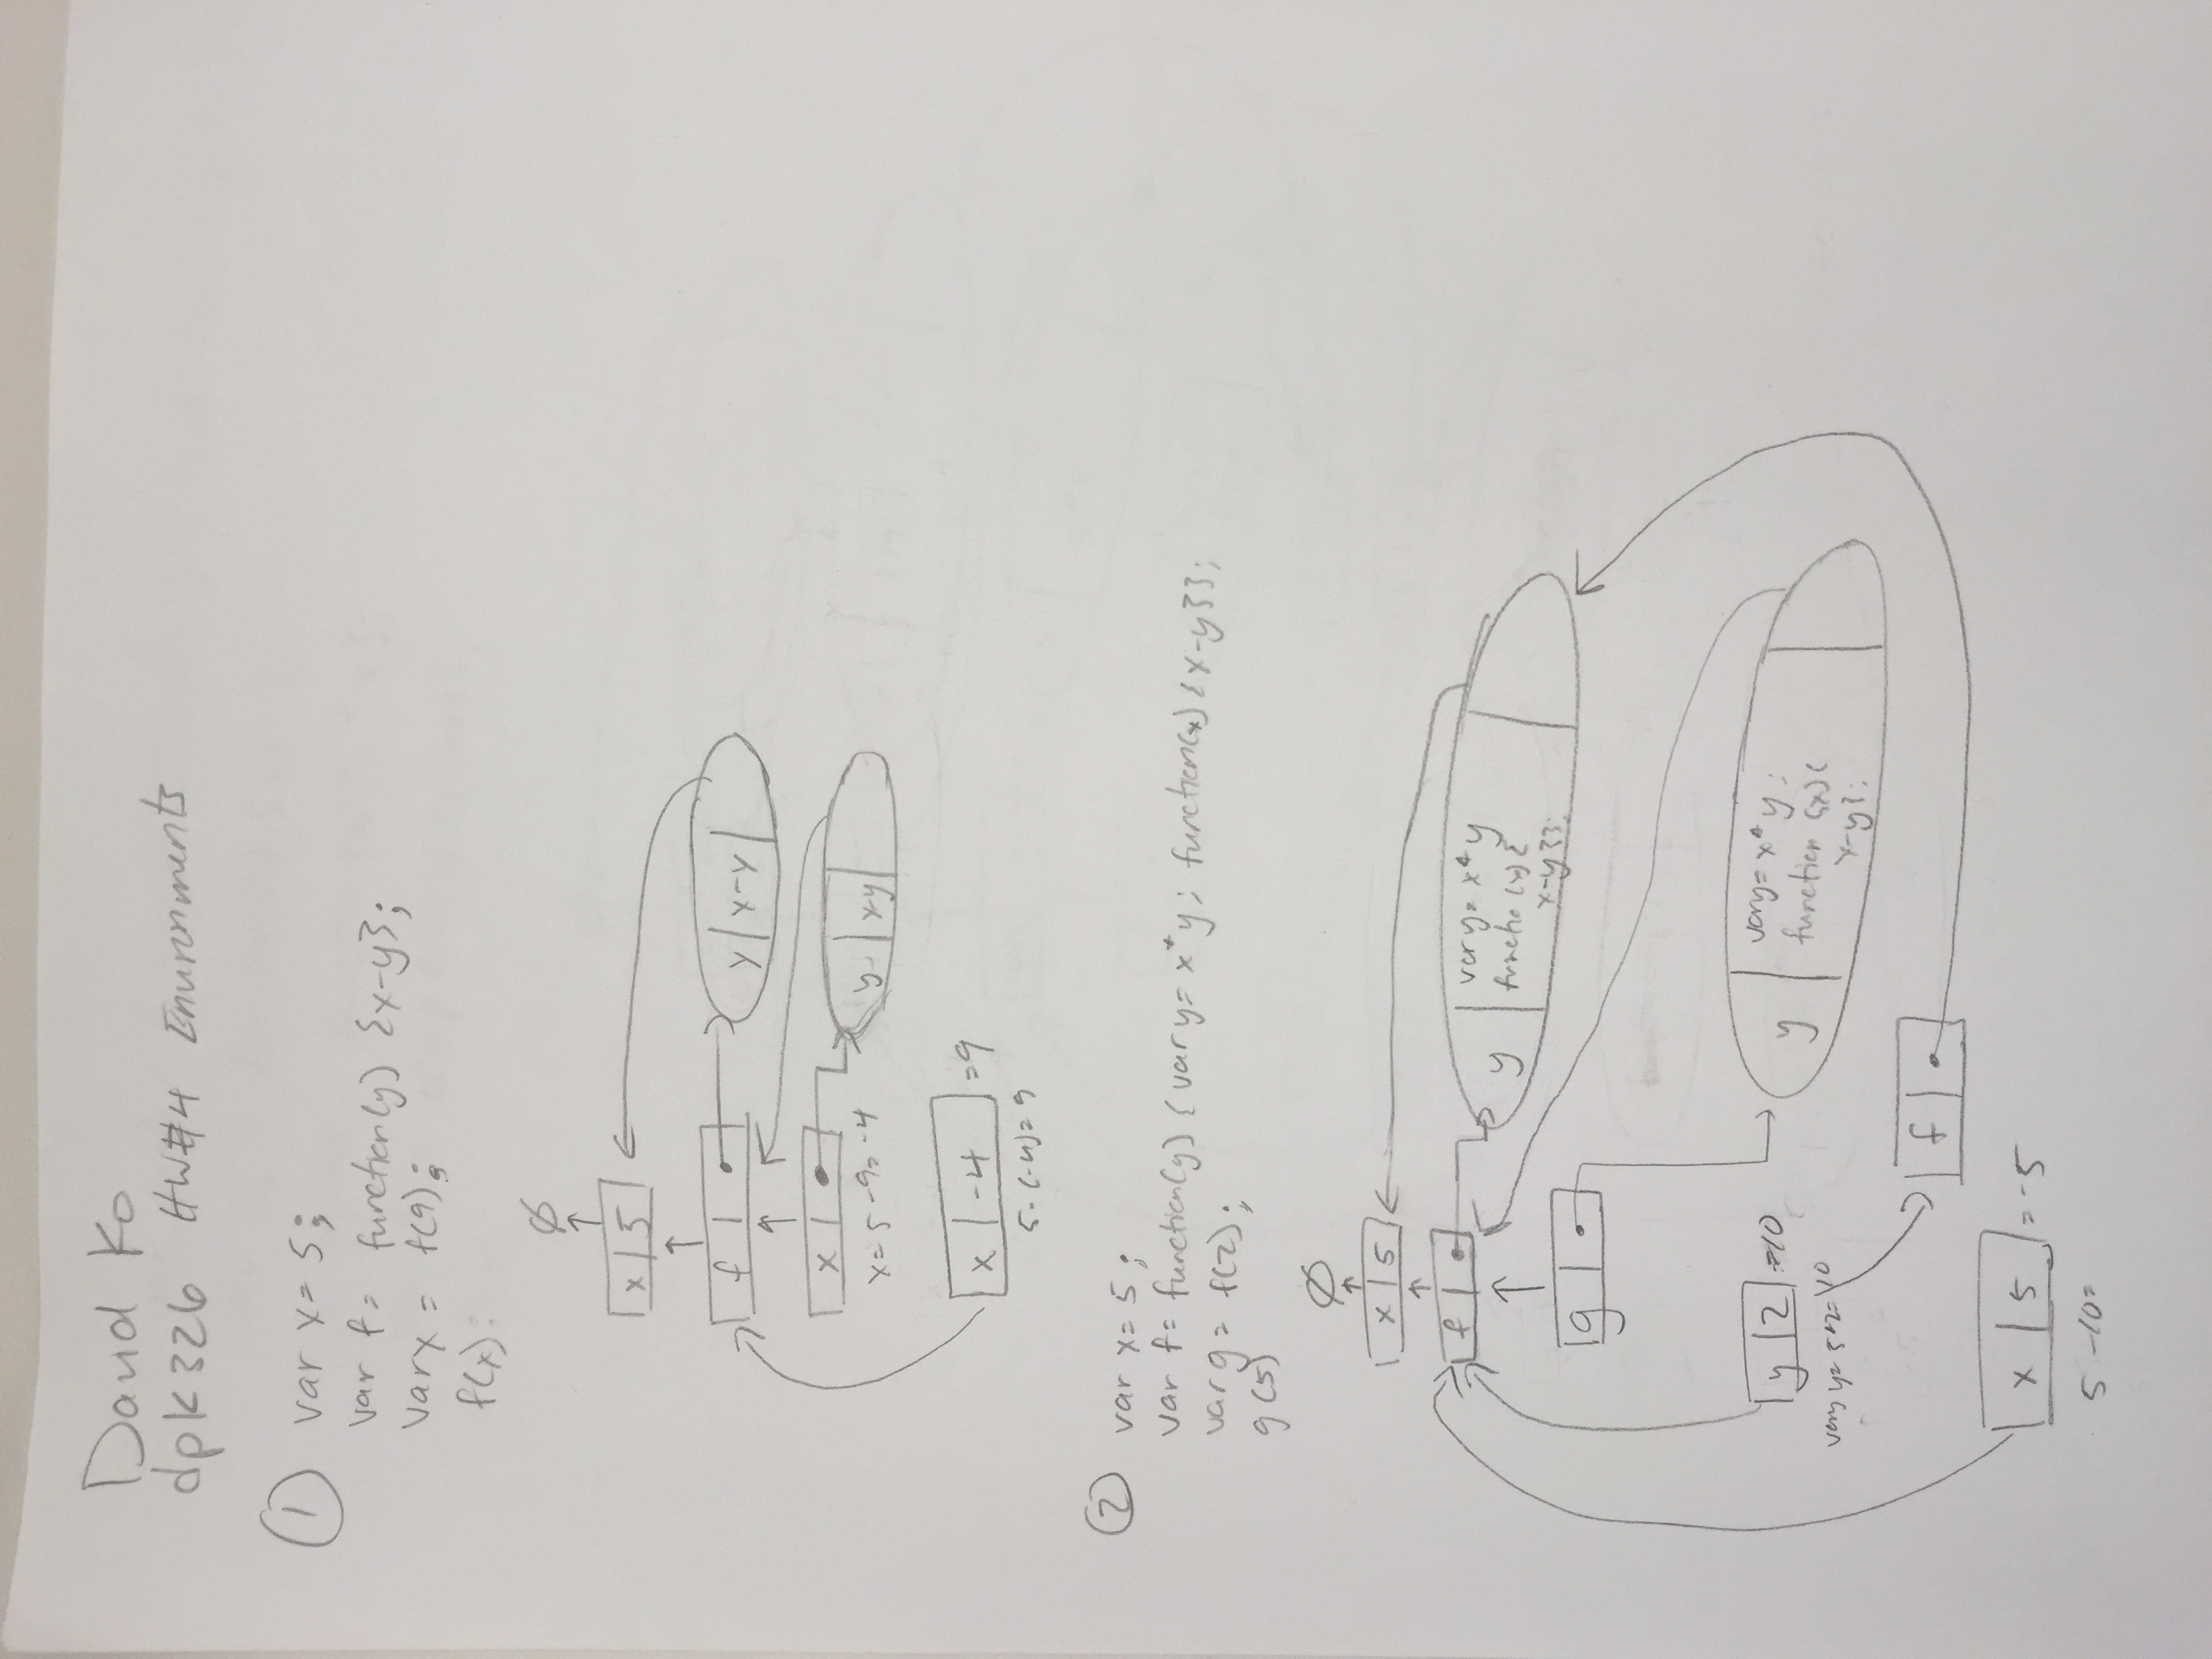 David Ko
dpk326 HW#4 Environments
① var x = 5;
var f = function(y) {x-y};
var x = f(9);
f(x):
∅
x | 5
f |
y | x-y |
x |
x = 5 - 9 = -4
y | x-y |
x | -4 = 9
5 - (-4) = 9
② var x = 5;
var f = function(y) { var y = x*y; function(x) {x-y}};
var g = f(2);
g(5)
∅
x | 5
f |
y | var y = x*y
function (x) {
x-y}};
g |
y | 2 = 10
var y = 5*2 = 10
y | var y = x*y;
function (x) {
x-y};
f |
x | 5 = -5
5 - 10 =